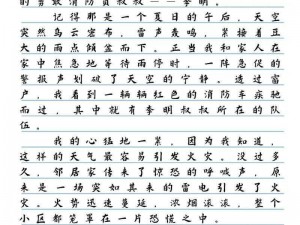 的勇敢消防员叔叔——李明。
记得那是一个夏日的午后，天空
突然乌云密布，雷声轰鸣，紧接着豆
大的雨点倾盆而下。正当我和家人在
家中焦急地等待雨停时，一阵急促的
警报声划破了天空的宁静。透过窗
户，我看到一辆辆红色的消防车疾驰
而过，其中就有李明叔叔所在的队
伍。
我的心猛地一紧，因为我知道，
这样的天气最容易引发火灾。没过多
久，邻居家传来了惊恐的呼喊声，原
来是一场突如其来的雷电引发了火
灾。火势迅速蔓延，浓烟滚滚，整个
小区都笼罩在一片恐慌之中。